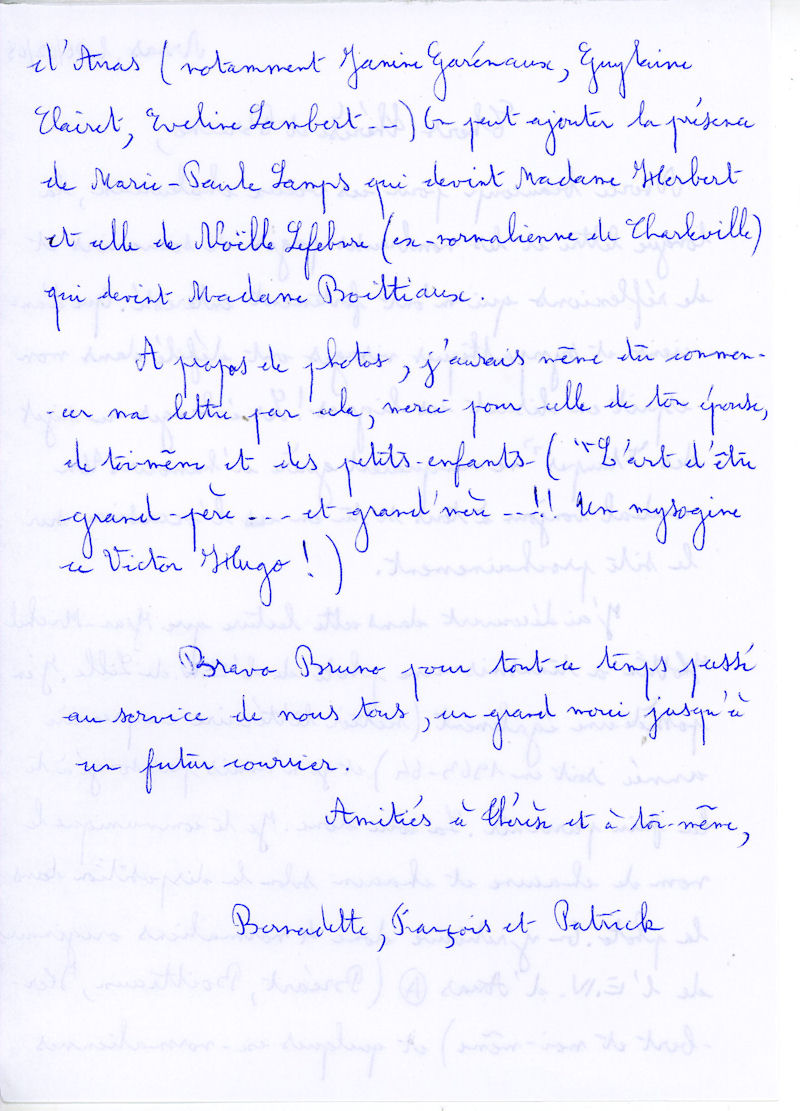 d'Arras (notamment Janine Garénaux, Guylaine
Clairet, Eveline Lambert ---) On peut ajouter la présence
de Marie-Paule Lamps qui devint Madame Herbert
et celle de Noëlle Lefebvre (ex-normalienne de Charleville)
qui devint Madame Boittiaux.
A propos de photos, j'aurais même dû commen-
-cer ma lettre par cela, merci pour celle de ton épouse,
de toi-même et des petits-enfants (“L'art d'être
grand-père --- et grand'mère --!! Un mysogine
ce Victor Hugo ! )
Bravo Bruno pour tout ce temps passé
au service de nous tous, un grand merci jusqu'à
un futur courrier.
Amitiés à Thérèse et à toi-même,
Bernadette, François et Patrick